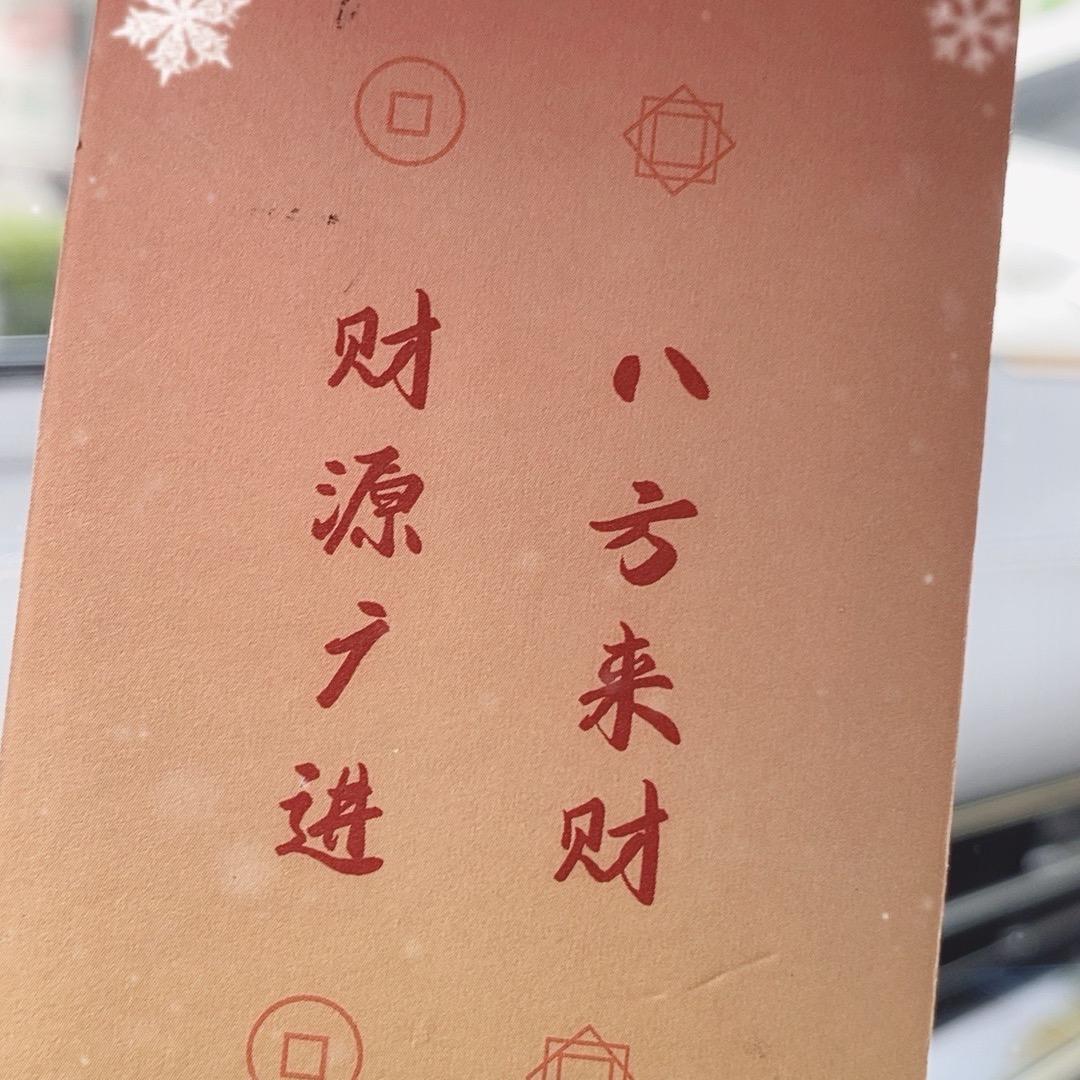 八方来财
财源广进